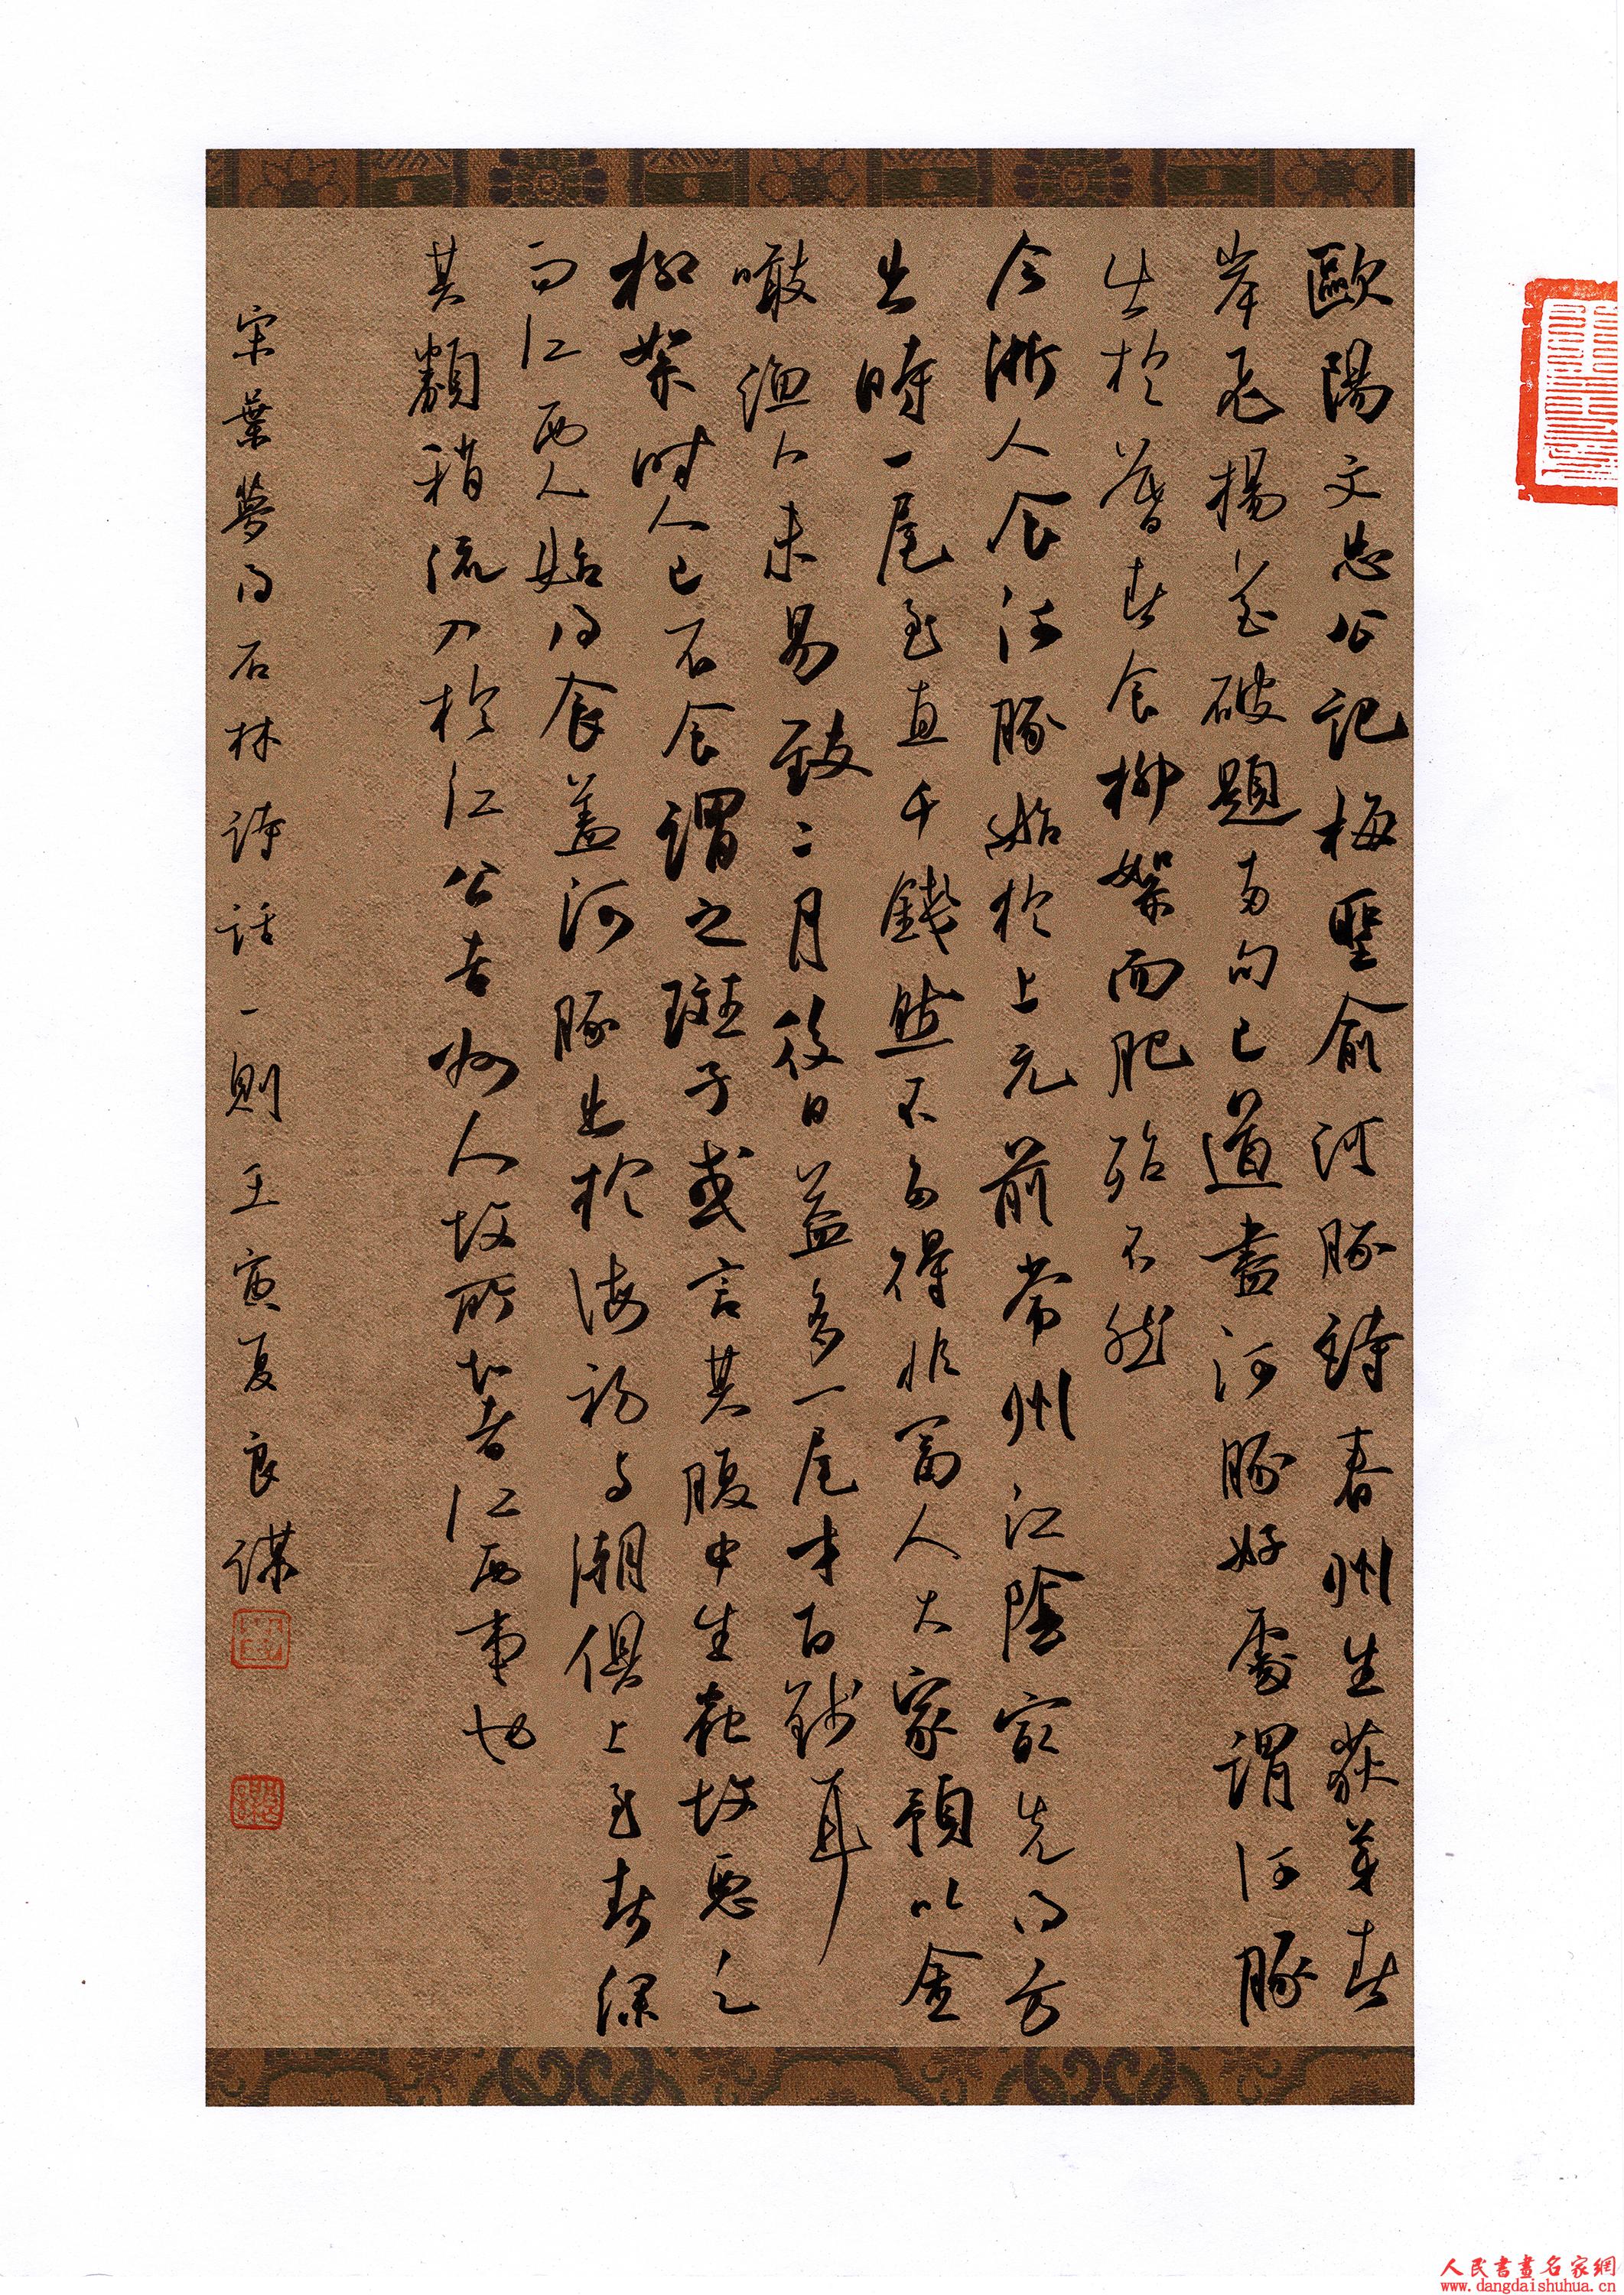 歐陽文忠公記梅聖俞河豚詩春州生荻芽春
岸飛楊花破題兩句已道盡河豚好處謂河豚
出於暮春食柳絮而肥殆不然
今浙人食河豚始於上元前常州江陰最先得方
出時一尾至直千錢然不多得非富人大家預以金
噉漁人未易致二月後日益多一尾才百錢耳
柳絮時人已不食謂之斑子或言其腹中生蟲故惡之
而江西人始得食蓋河豚出於海初與潮俱上至春深
其類稍流入於江公吉州人故所知者江西事也
宋葉夢得石林詩話一則王寅夏良謀
人民書畫名家網
www.dangdaishuhua.cn